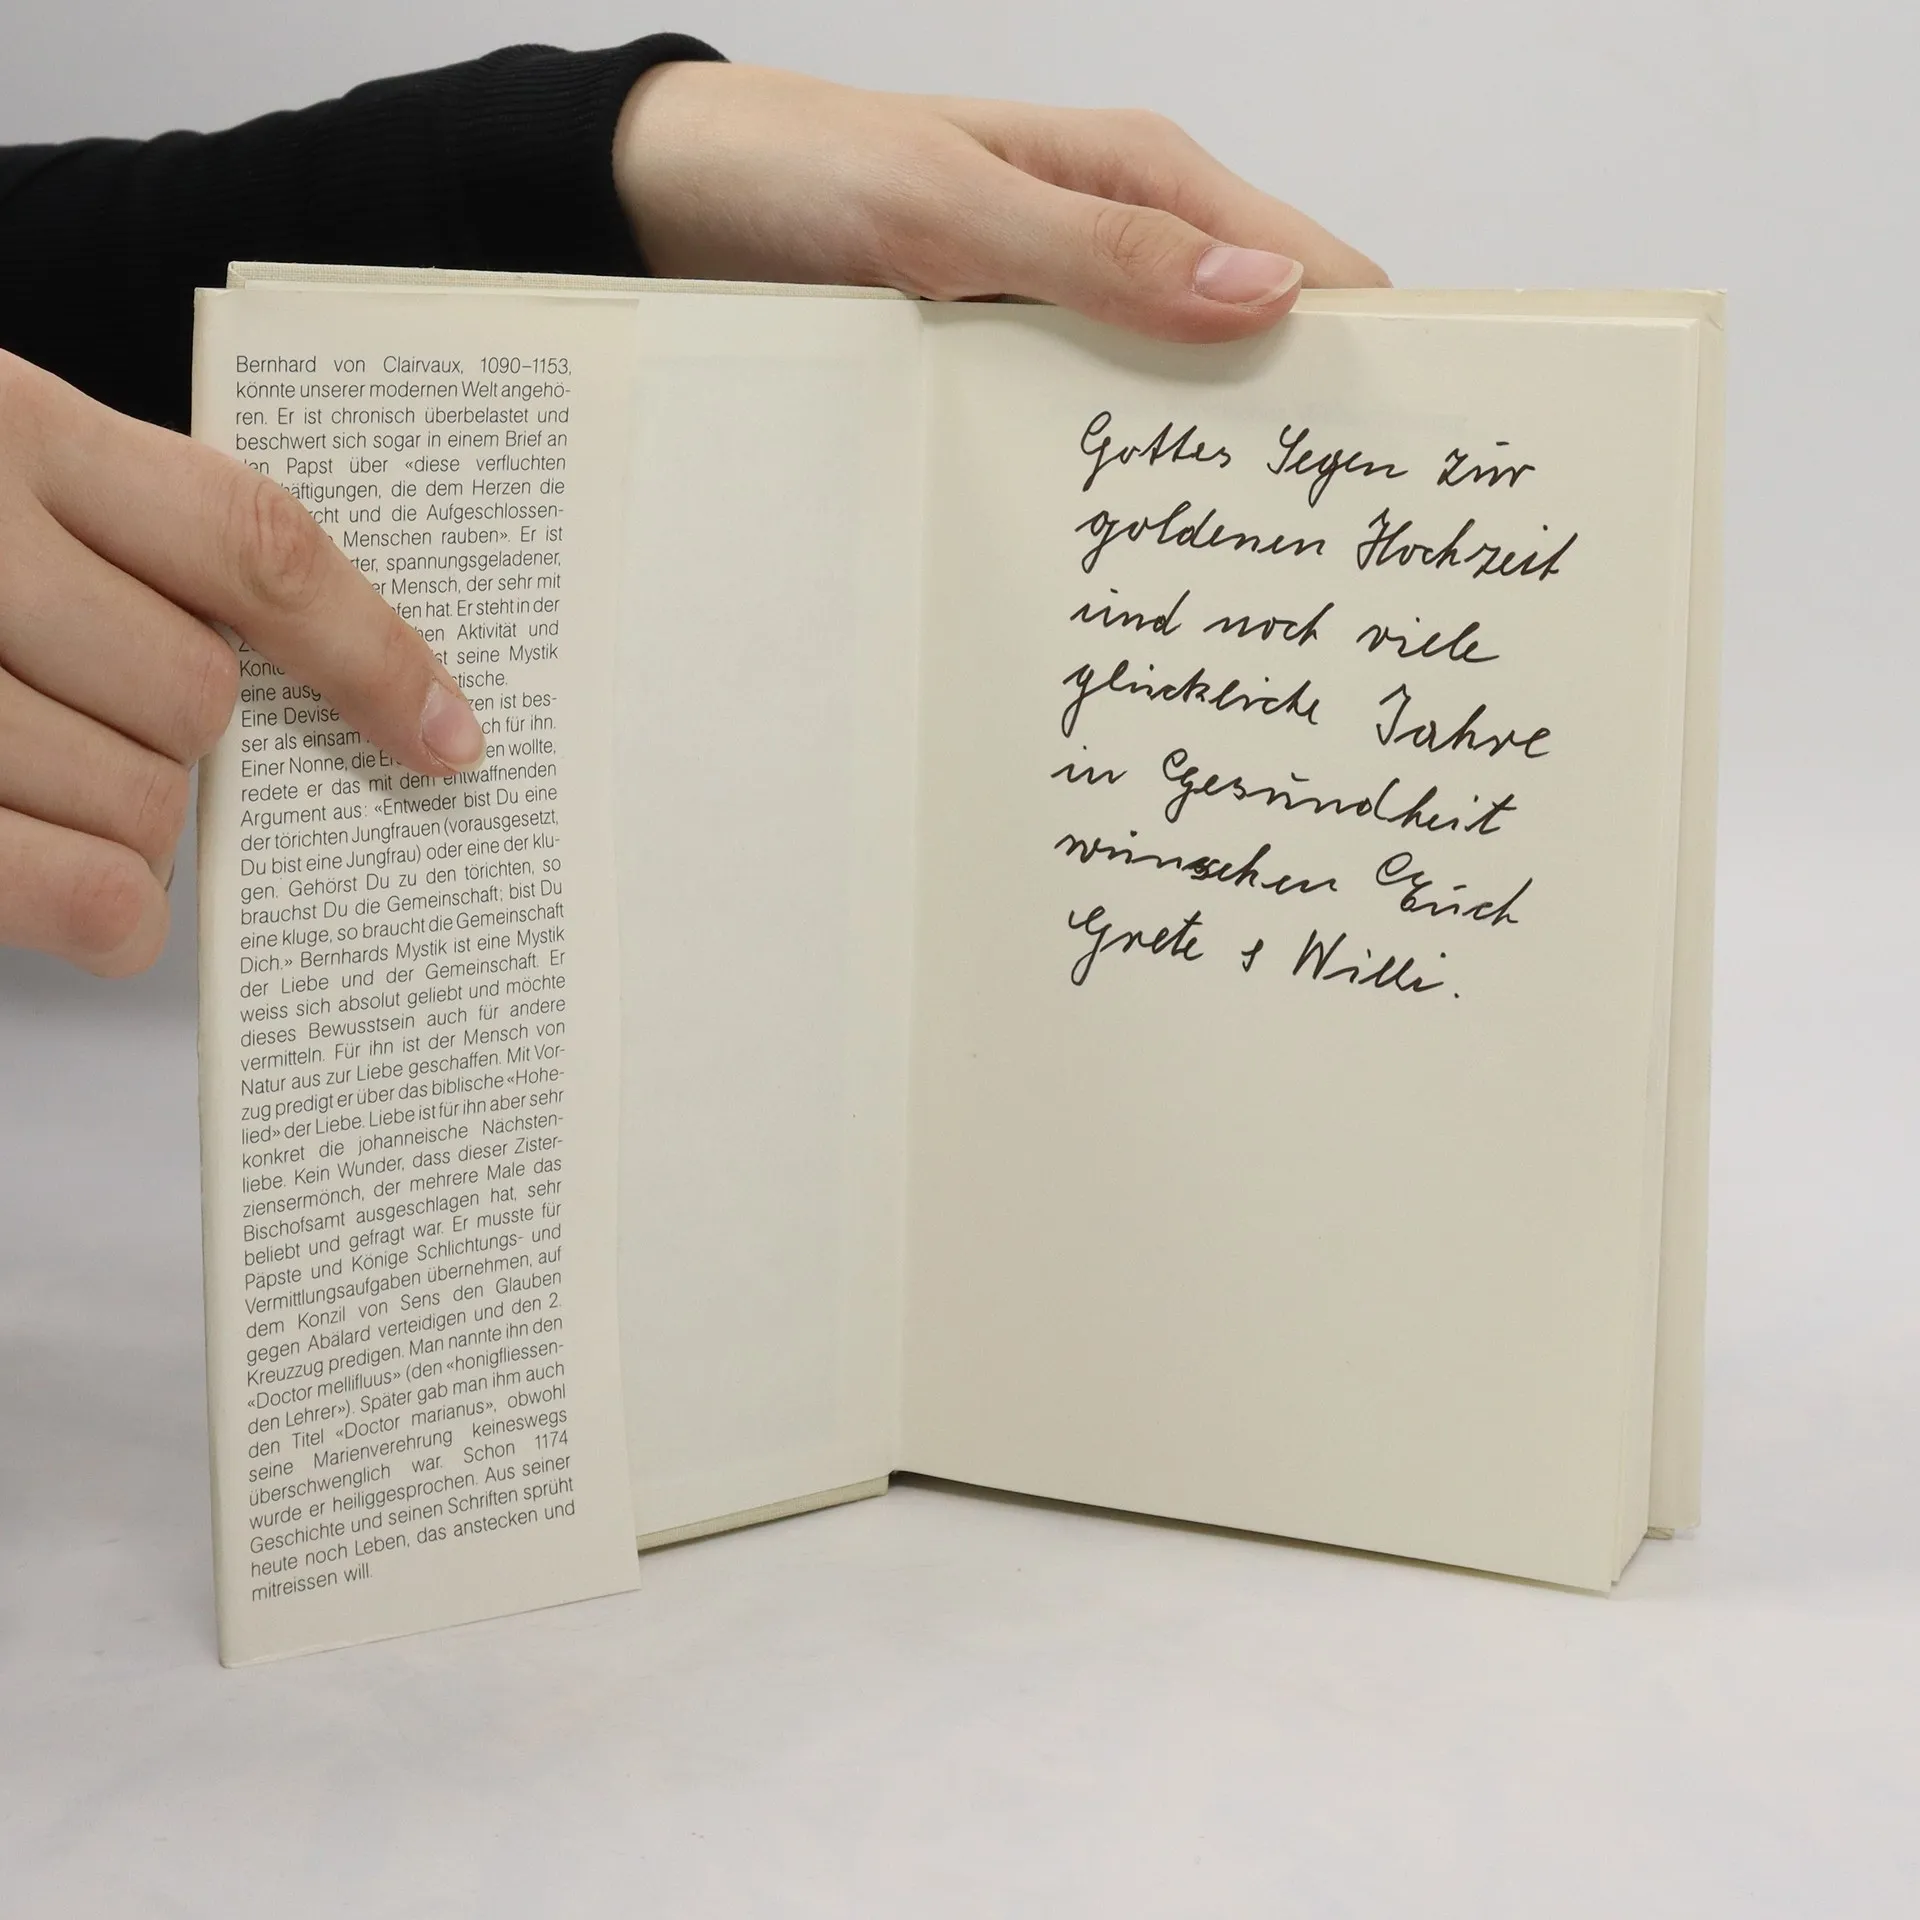 Bernhard von Clairvaux, 1090–1153,
könnte unserer modernen Welt angehö-
ren. Er ist chronisch überbelastet und
beschwert sich sogar in einem Brief an
Papst über «diese verfluchten
häftigungen, die dem Herzen die
rcht und die Aufgeschlossen-
Menschen rauben». Er ist
rter, spannungsgeladener,
er Mensch, der sehr mit
fen hat. Er steht in der
hen Aktivität und
Konte st seine Mystik
eine ausg tische.
Eine Devise zen ist bes-
ser als einsam ch für ihn.
Einer Nonne, die en wollte,
redete er das mit dem entwaffnenden
Argument aus: «Entweder bist Du eine
der törichten Jungfrauen (vorausgesetzt,
Du bist eine Jungfrau) oder eine der klu-
gen. Gehörst Du zu den törichten, so
brauchst Du die Gemeinschaft; bist Du
eine kluge, so braucht die Gemeinschaft
Dich.» Bernhards Mystik ist eine Mystik
der Liebe und der Gemeinschaft. Er
weiss sich absolut geliebt und möchte
dieses Bewusstsein auch für andere
vermitteln. Für ihn ist der Mensch von
Natur aus zur Liebe geschaffen. Mit Vor-
zug predigt er über das biblische «Hohe-
lied» der Liebe. Liebe ist für ihn aber sehr
konkret die johanneische Nächsten-
liebe. Kein Wunder, dass dieser Zister-
ziensermönch, der mehrere Male das
Bischofsamt ausgeschlagen hat, sehr
beliebt und gefragt war. Er musste für
Päpste und Könige Schlichtungs- und
Vermittlungsaufgaben übernehmen, auf
dem Konzil von Sens den Glauben
gegen Abälard verteidigen und den 2.
Kreuzzug predigen. Man nannte ihn den
«Doctor mellifluus» (den «honigfliessen-
den Lehrer»). Später gab man ihm auch
den Titel «Doctor marianus», obwohl
seine Marienverehrung keineswegs
überschwenglich war. Schon 1174
wurde er heiliggesprochen. Aus seiner
Geschichte und seinen Schriften sprüht
heute noch Leben, das anstecken und
mitreissen will.
Gottes Segen zur
goldenen Hochzeit
und noch viele
glückliche Jahre
in Gesundheit
wünschen Euch
Grete & Willi.